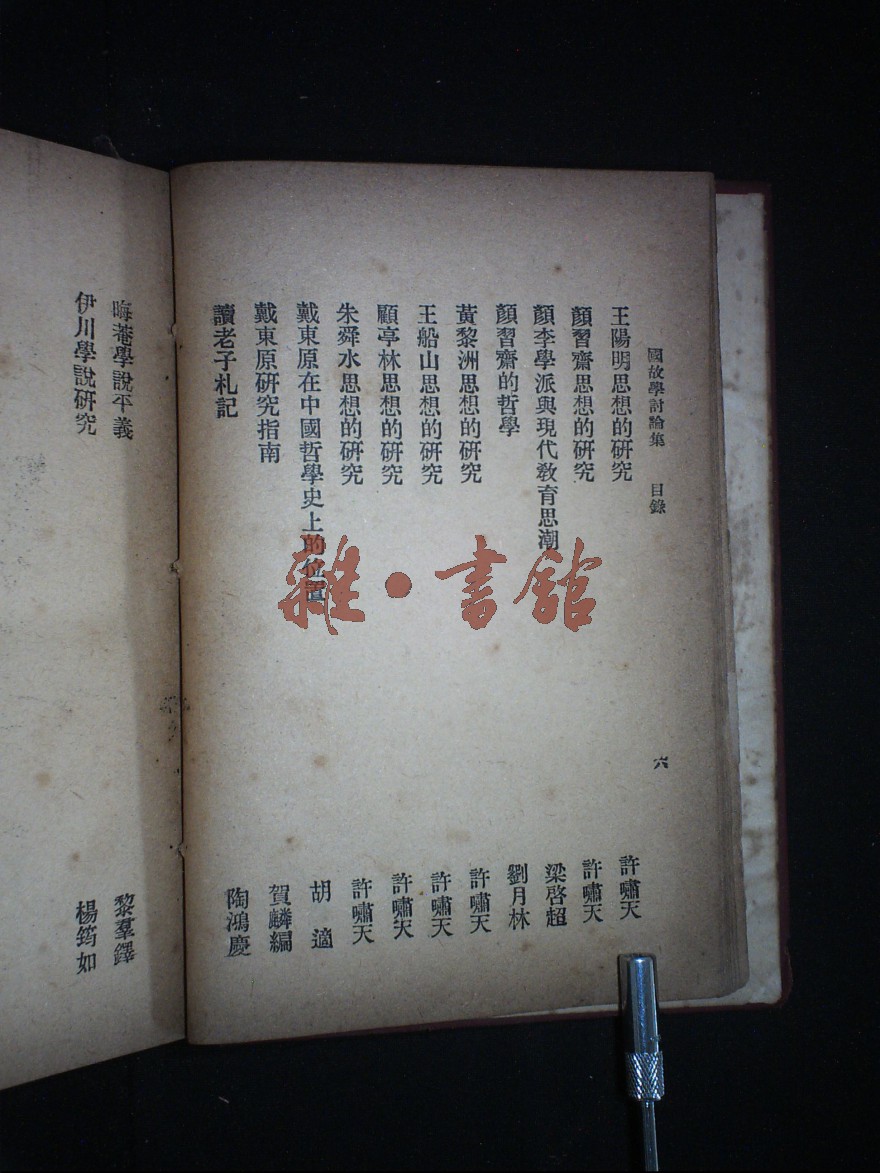 國故學討論集 目錄 六
王陽明思想的研究 許嘯天
顏習齋思想的研究 許嘯天
顏李學派與現代敎育思潮 梁啓超
顏習齋的哲學 劉月林
黃黎洲思想的研究 許嘯天
王船山思想的研究 許嘯天
顧亭林思想的研究 許嘯天
朱舜水思想的研究 許嘯天
戴東原在中國哲學史上的位置 胡適
戴東原研究指南 賀麟編
讀老子札記 陶鴻慶
晦菴學說平義 黎羣鐸
伊川學說研究 楊筠如
雜·書館